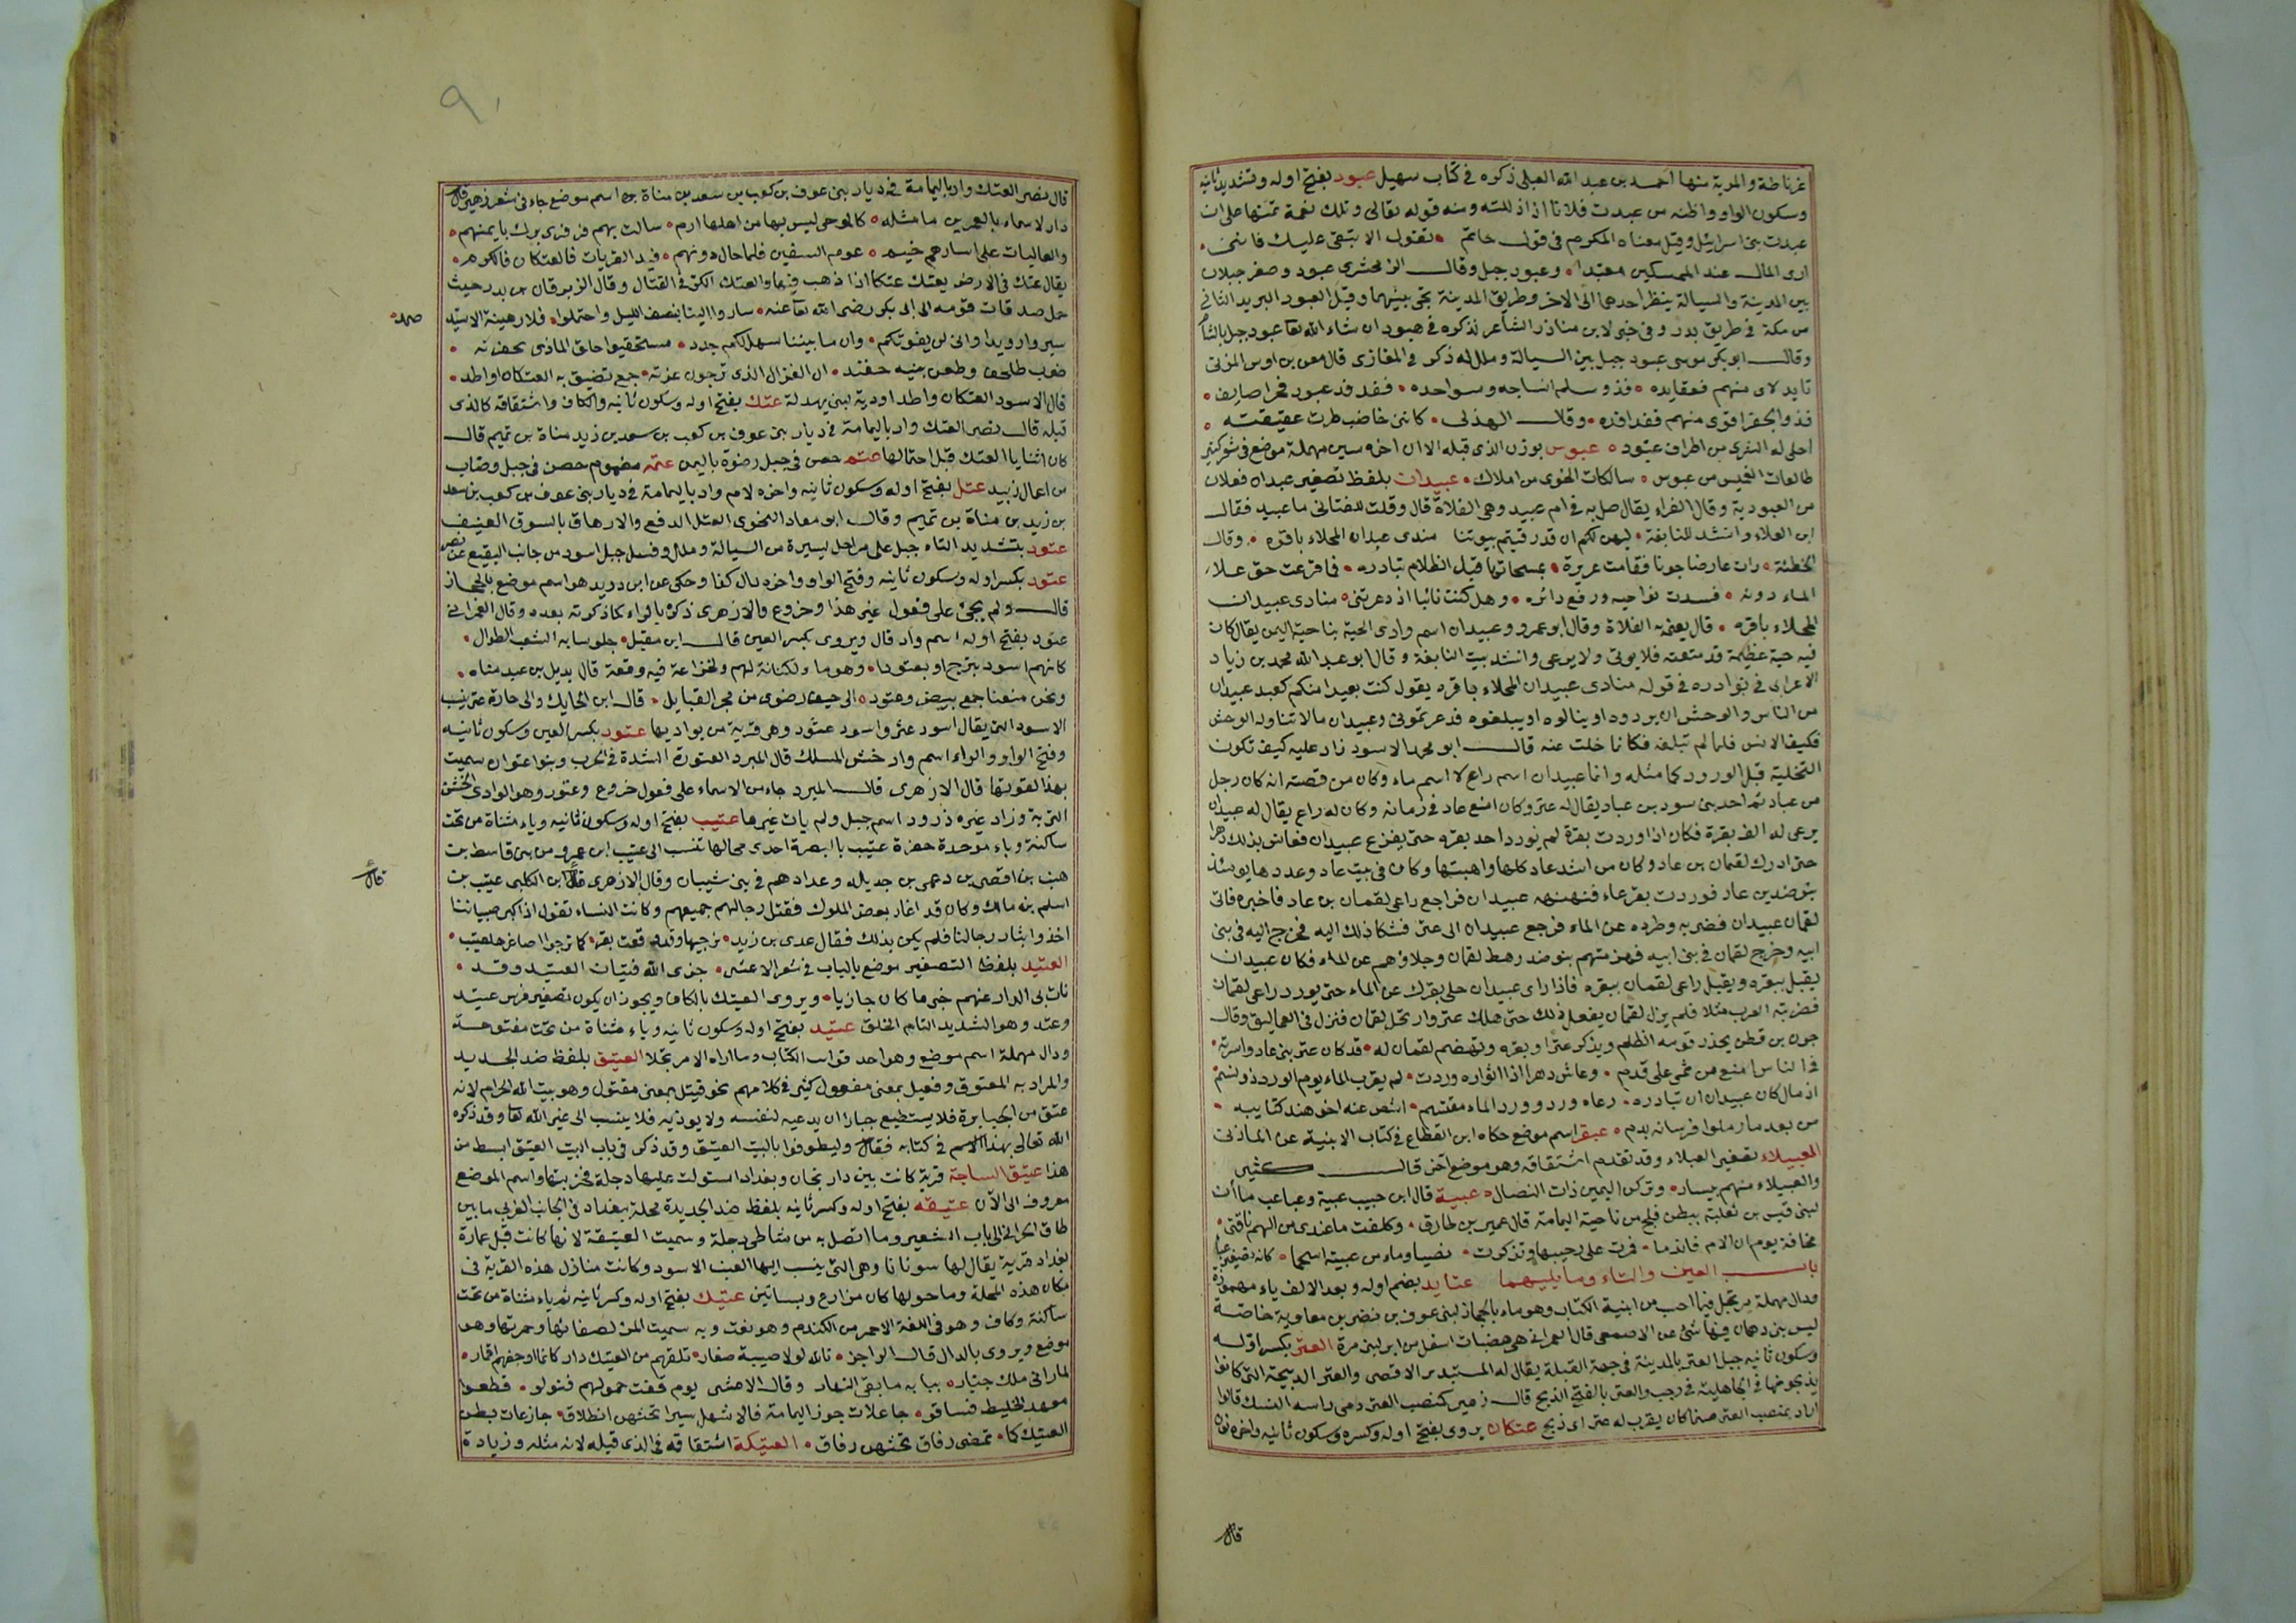 غرناطة والمرية منها احمد بن عبد الله العبلى ذكره فى كتاب سهيل عبود بفتح اوله وتشديد ثانيه
وسكون الواو واظنه من عبدت فلانا اذا ذللته ومنه قوله تعالى وتلك نعمة تمنها على ان
عبدت بنى اسرائيل وقيل معناه المكرم فى قول حاتم تقول الا تبقى عليك فاننى
ارى المال عند الممسكين معبدا وعبود جبل وقال الزمخشرى عبود وصغر جبلان
بين المدينة والسيالة ينظر احدهما الى الاخر وطريق المدينة تجى بينهما وقيل العبود البريد الثانى
من مكة فى طريق بدر وفى خبر لابن مناذر الشاعر نذكره فى هبود ان شاء الله تعا عبود جبل بالشام
وقال ابو بكر موسى عبود جبل بين السيالة وملل له ذكر فى المغازى قال معن بن اوس المزنى
تابد لاى منهم فعقايده فذو سلم انساجه وسواحده ففدفد عبود فخبرا صايف
فذو الجفر اقوى منهم ففدافده وقال الهذلى كاننى خاضب طرت عقيقته
اخلى له الشرى من اطراف عبود عبوس بوزن الذى قبله الا ان اخره سين مهملة موضع فى شعر كثير
طالعات الغميس من عبوس سالكات الخوى من املاك عبيدان بلفظ تصغير عبدان فعلان
من العبودية وقال الفراء يقال صل به فى ام عبيد وهى الفلاة قال وقلت للقنانى ما عبيد فقال
ابن الفلاء وانشد للنابغة ليهن لكم ان قد رقيتم بيوتنا مندى عبدان المحلاء باقره وقال
الحطئة رات عارضا جونا فقامت غريرة بمسحاتها قبل الظلام تبادره فما فرغت حتى علا
الماء دونه فسدت نواحيه ورفع دائره وهل كنت نائبا اذ دعوتنى منادى عبيدان
المحلاء باقره قال يعنى الفلاة وقال ابو عمرو وعبيدان اسم وادى الحية بناحية اليمن يقال كان
فيه حية عظيمة قد منعته فلا يوتى ولا يرعى وانشد بيت النابغة وقال ابو عبد الله محمد بن زياد
الاعرابى فى نوادره فى قوله منادى عبيدان المحلاء باقره يقول كنت بعيدا منكم كبعد عبيدان
من الناس والوحش ان يردوه او ينالوه او يبلغوه وعبيدان ما لا تناوله الوحش
فكيف الانس فلما لم تبلغه فكانما حليت عنه قال ابو محمد الاسود زاد عليه كيف تكون
التخلية قبل الورود كما مثله وانما عبيدان اسم راع لا اسم ماء وكان من قصته انه كان رجل
من عاد ثم احد بنى سود بن عاد يقال له عتر وكان امنع عاد فى زمانه وكان له راع يقال له عبيدان
يرعى له الف بقرة فكان اذا وردت بقره لم يورد احد بقره حتى يفرغ عبيدان فعاش بذلك دهرا
حتى ادرك لقمان بن عاد وكان من اشد عاد كلها واهيبها وكان فى بيت عاد وعددها يومئذ
بنو ضد بن عاد فوردت بقر عاد فنهنهه عبيدان فرجع راعى لقمان بن عاد فاخبره فاتى
لقمان عبيدان فضربه وطرده عن الماء فرجع عبيدان الى عتر فشكا ذلك اليه فخرج اليه فى بنى
ابيه وخرج لقمان فى بنى ابيه فهزمتهم بنو ضد رهط لقمان وحلاؤهم عن الماء فكان عبيدان
يقبل ببقره ويقبل راعى لقمان ببقره فاذا راى عبيدان حلى بقره عن الماء حتى يورد راعى لقمان
فضربته العرب مثلا فلم يزل لقمان يفعل ذلك حتى هلك عتر وارتحل لقمان فنزل فى العماليق وقال
جون بن قطن يحذر قومه الظلم ويذكر عترا وبقره وتهضم لقمان له قد كان عتر بنى عاد واسرته
فى الناس امنع من يمشى على قدم وعاش دهرا اذا اثواره وردت لم يقرب الماء يوم الورد ذو نسم
ازمان كان عبيدان تبادره رعاء ورد وورد الماء مقتسم اشص عنه اخو هند كتايبه
من بعد ما رملوا فرسانه بدم عبقر اسم موضع حكاه ابن القطاع فى كتاب الابنية عن المازنى
العبيلاء تصغير العبلاء وقد تقدم اشتقاقه وهو موضع اخر قال كثير
والعبيلاء منهم بيسار وتركن اليمين ذات النصال عبية قال ابن حبيب عبية وعباعب ماآن
لبنى قيس بن ثعلبة ببطن فلج من ناحية اليمامة قال عمير بن طارق وكلفت ما عندى من الهم ناقتى
مخافة يوم ان الام فاندما فمرت على وحشيها وتذكرت نصيا وماء من عبية اسحما كانه تصغير عباء
باب العين والتاء وما يليهما عتايد بضم اوله وبعد الالف ياء مهموزة
ودال مهملة مرتجل فيما احسب من ابنية الكتاب وهو ماء بالحجاز لبنى عوف بن نصر بن معاوية خاصة
ليس بنى دهمان فيها شئ عن الاصمعى قال العمرانى هى هضبات اسفل من ابلى لبنى مرة العتر بكسر اوله
وسكون ثانيه جبل العتر بالمدينة فى جهة القبلة يقال له المستدير الاقصى والعتر الذبيحة التى كانوا
يذبحونها فى الجاهلية فى رجب والعتر بالفتح الذبح قال زهير كمنصب العتر دمى راسه النسك قالوا
اراد بمنصب العتر صنما كان يقرب له عتر اى ذبح عتكان يروى بفتح اوله وكسره وسكون ثانيه واخره نون
قال
٩٠
قال نصر العتك واد باليمامة فى ديار بنى عوف بن كعب بن سعد بن مناة اسم موضع جاء فى شعر زهير قال
دار لاسماء بالغمرين ماثلة كالوحى ليس بها من اهلها ارم سالت بهم قرقرى برك بايمنهم
والعاليات على ايسارهم خيم عوم السفين فلما حال دونهم فيد القريات فالعتكان فالكرم
يقال عتك فى الارض يعتك عتكا اذا ذهب فيها والعتك الكر فى القتال وقال الزبرقان بن بدر حيث
حمل صدقات قومه الى ابى بكر رضى الله تعا عنه ساروا الينا بنصف الليل واحتملوا فلا رهينة الا سيد
صمد
سيروا رويدا وانى لن يفوتكم وان ما بيننا سهل لكم جدد مستحقبوا حلق الماذى
ان الغزال الذى ترجون عزته جمع تضيق به العتكان او اطد
قال الاسود العتكان واطد اودية لبنى بهدلة عتك بفتح اوله وسكون ثانيه والكاف واشتقاقه كالذى
قبله قال نصر العتك واد باليمامة فى ديار بنى عوف بن كعب بن سعد بن زيد مناة بن تميم قال
كان ثنايا العتك قبل احتمالها عتم حصن فى جبل رضوة باليمن عتمه مفهوم حصن فى جبل وصاب
من اعمال زبيد عتل بفتح اوله وسكون ثانيه واخره لام واد باليمامة فى ديار بنى عوف بن كعب بن سعد
بن زيد بن مناة بن تميم وقال ابو معاد النحوى العتل الدفع والارهاق بالسوق العنيف
عتود بتشديد التاء جبل على مراحل يسيرة من السيالة وملل وقيل جبل اسود من جانب البقيع عن نصر
عتود بكسر اوله وسكون ثانيه وفتح الواو واخره دال كذا وحكى عن ابن دريد هو اسم موضع بالحجاز
قال ولم يجئ على فعول غير هذا وخروع والازهرى ذكره بالراء كما ذكرته بعده وقال العمرانى
عتود بفتح اوله اسم واد قال ويروى بكسر العين قال ابن مقبل جلوسا به الشعب الطوال
كانهم اسود بترج او بعتودا وهو ماء لكنانة لهم ولخزاعة فيه وقعة قال بديل بن عبد مناه
ونحن منعنا جمع بيض وعتود الى خيف رضوى من مجر القبايل قال ابن الحايك والى حارة عتر ينسب
الاسود التى يقال اسود عثر واسود عتود وهى قرية من بواديها عتود بكسر العين وسكون ثانيه
وفتح الواو والراء اسم واد خشن المسلك قال المبرد العتورة الشدة فى الحرب وبنو اعتوان سميت
بهذا لقوتها قال الازهرى قال المبرد جاء من الاسماء على فعول خروع وعتور وهو الوادى الخشن
التربة وزاد غيره ذرود اسم جبل ولم يات غيرها عتيب بفتح اوله وسكون ثانيه وياء مثناة من تحت
ساكنة وباء موحدة حفرة عتيب بالبصرة احدى محالها تنسب الى عتيب ابن عمرو من بنى قاسط بن
هنب بن افصى بن دعمى بن جديلة وعدادهم فى بنى شيبان وقال الازهرى قال ابن الكلبى عتيب بن
قال
اسلم بن مالك وكان قد اغار بعض الملوك فقتل رجالهم جميعهم وكانت النساء تقول اذا كبر صبياننا
اخذوا بثار رجالنا فلم يكن بذلك فقال عدى بن زيد نرجيها وقد وقعت بقر كما ترجوا اصاغرها عتيب
العتيد بلفظ التصغير موضع بالياب فى شعر الاعشى جزى الله فتيان العتيد وقد
نات بى الدار عنهم خير ما كان جازيا ويروى العتيك بالكاف ويجوز ان يكون تصغير فرس عتيد
وعتد وهو الشديد التام الخلق عتيد بفتح اوله وسكون ثانيه وياء مثناة من تحت مفتوحة
ودال مهملة اسم موضع وهو احد فوات الكتاب وما اراه الا مرتجلا العتيق بلفظ ضد الجديد
والمراد به المعتوق وفعيل بمعنى مفعول كثير فى كلامهم نحو قتيل بمعنى مقتول وهو بيت الله الحرام لانه
عتق من الجبابرة فلا يستطيع جبارا ان يدعيه لنفسه ولا يوذيه فلا ينسب الى غير الله تعا وقد ذكره
الله تعالى بهذا الاسم فى كتابه فقال وليطوفوا بالبيت العتيق وقد ذكر فى باب البيت العتيق ابسط من
هذا عتيق الساجة قرية كانت بين داربجان وبغداد استولت عليها دجلة فخربتها واسم الموضع
معروف الى الآن عتيقه بفتح اوله وكسر ثانيه بلفظ ضد الجديدة محلة ببغداد فى الجانب الغربى ما بين
طاق الحرانى الى باب الشعير وما اتصل به من شاطئ دجلة وسميت العتيقة لانها كانت قبل عمارة
بغداد قرية يقال لها سونانا وهى التى ينسب اليها العنب الاسود وكانت منازل هذه القرية فى
مكان هذه المحلة وما حولها كان مزارع وبساتين عتيك بفتح اوله وكسر ثانيه ثم ياء مثناة من تحت
ساكنة وكاف وهو فى اللغة الاحمر من الكندم وهو نعت وبه سميت المرا لصفائها وحمرتها وهو
موضع ويروى بالدال قال الراجز تالله لولا صبية صغار تلفهم من العتيك دار كانما اوجههم اقمار
لما رانى ملك جبار ببابه ما بقى النهار وقال الاعشى يوم قفت حمولهم فتولوا قطعوا
معهد الخليط فساقو جاعلات جوز اليمامة فالاشمل سيرا تحثهن انطلاق جازعات بطن
العتيك كما تمضى رفاق تحثهن رفاق العتيكة اشتقاقه فى الذى قبله لانه مثله وزيادة